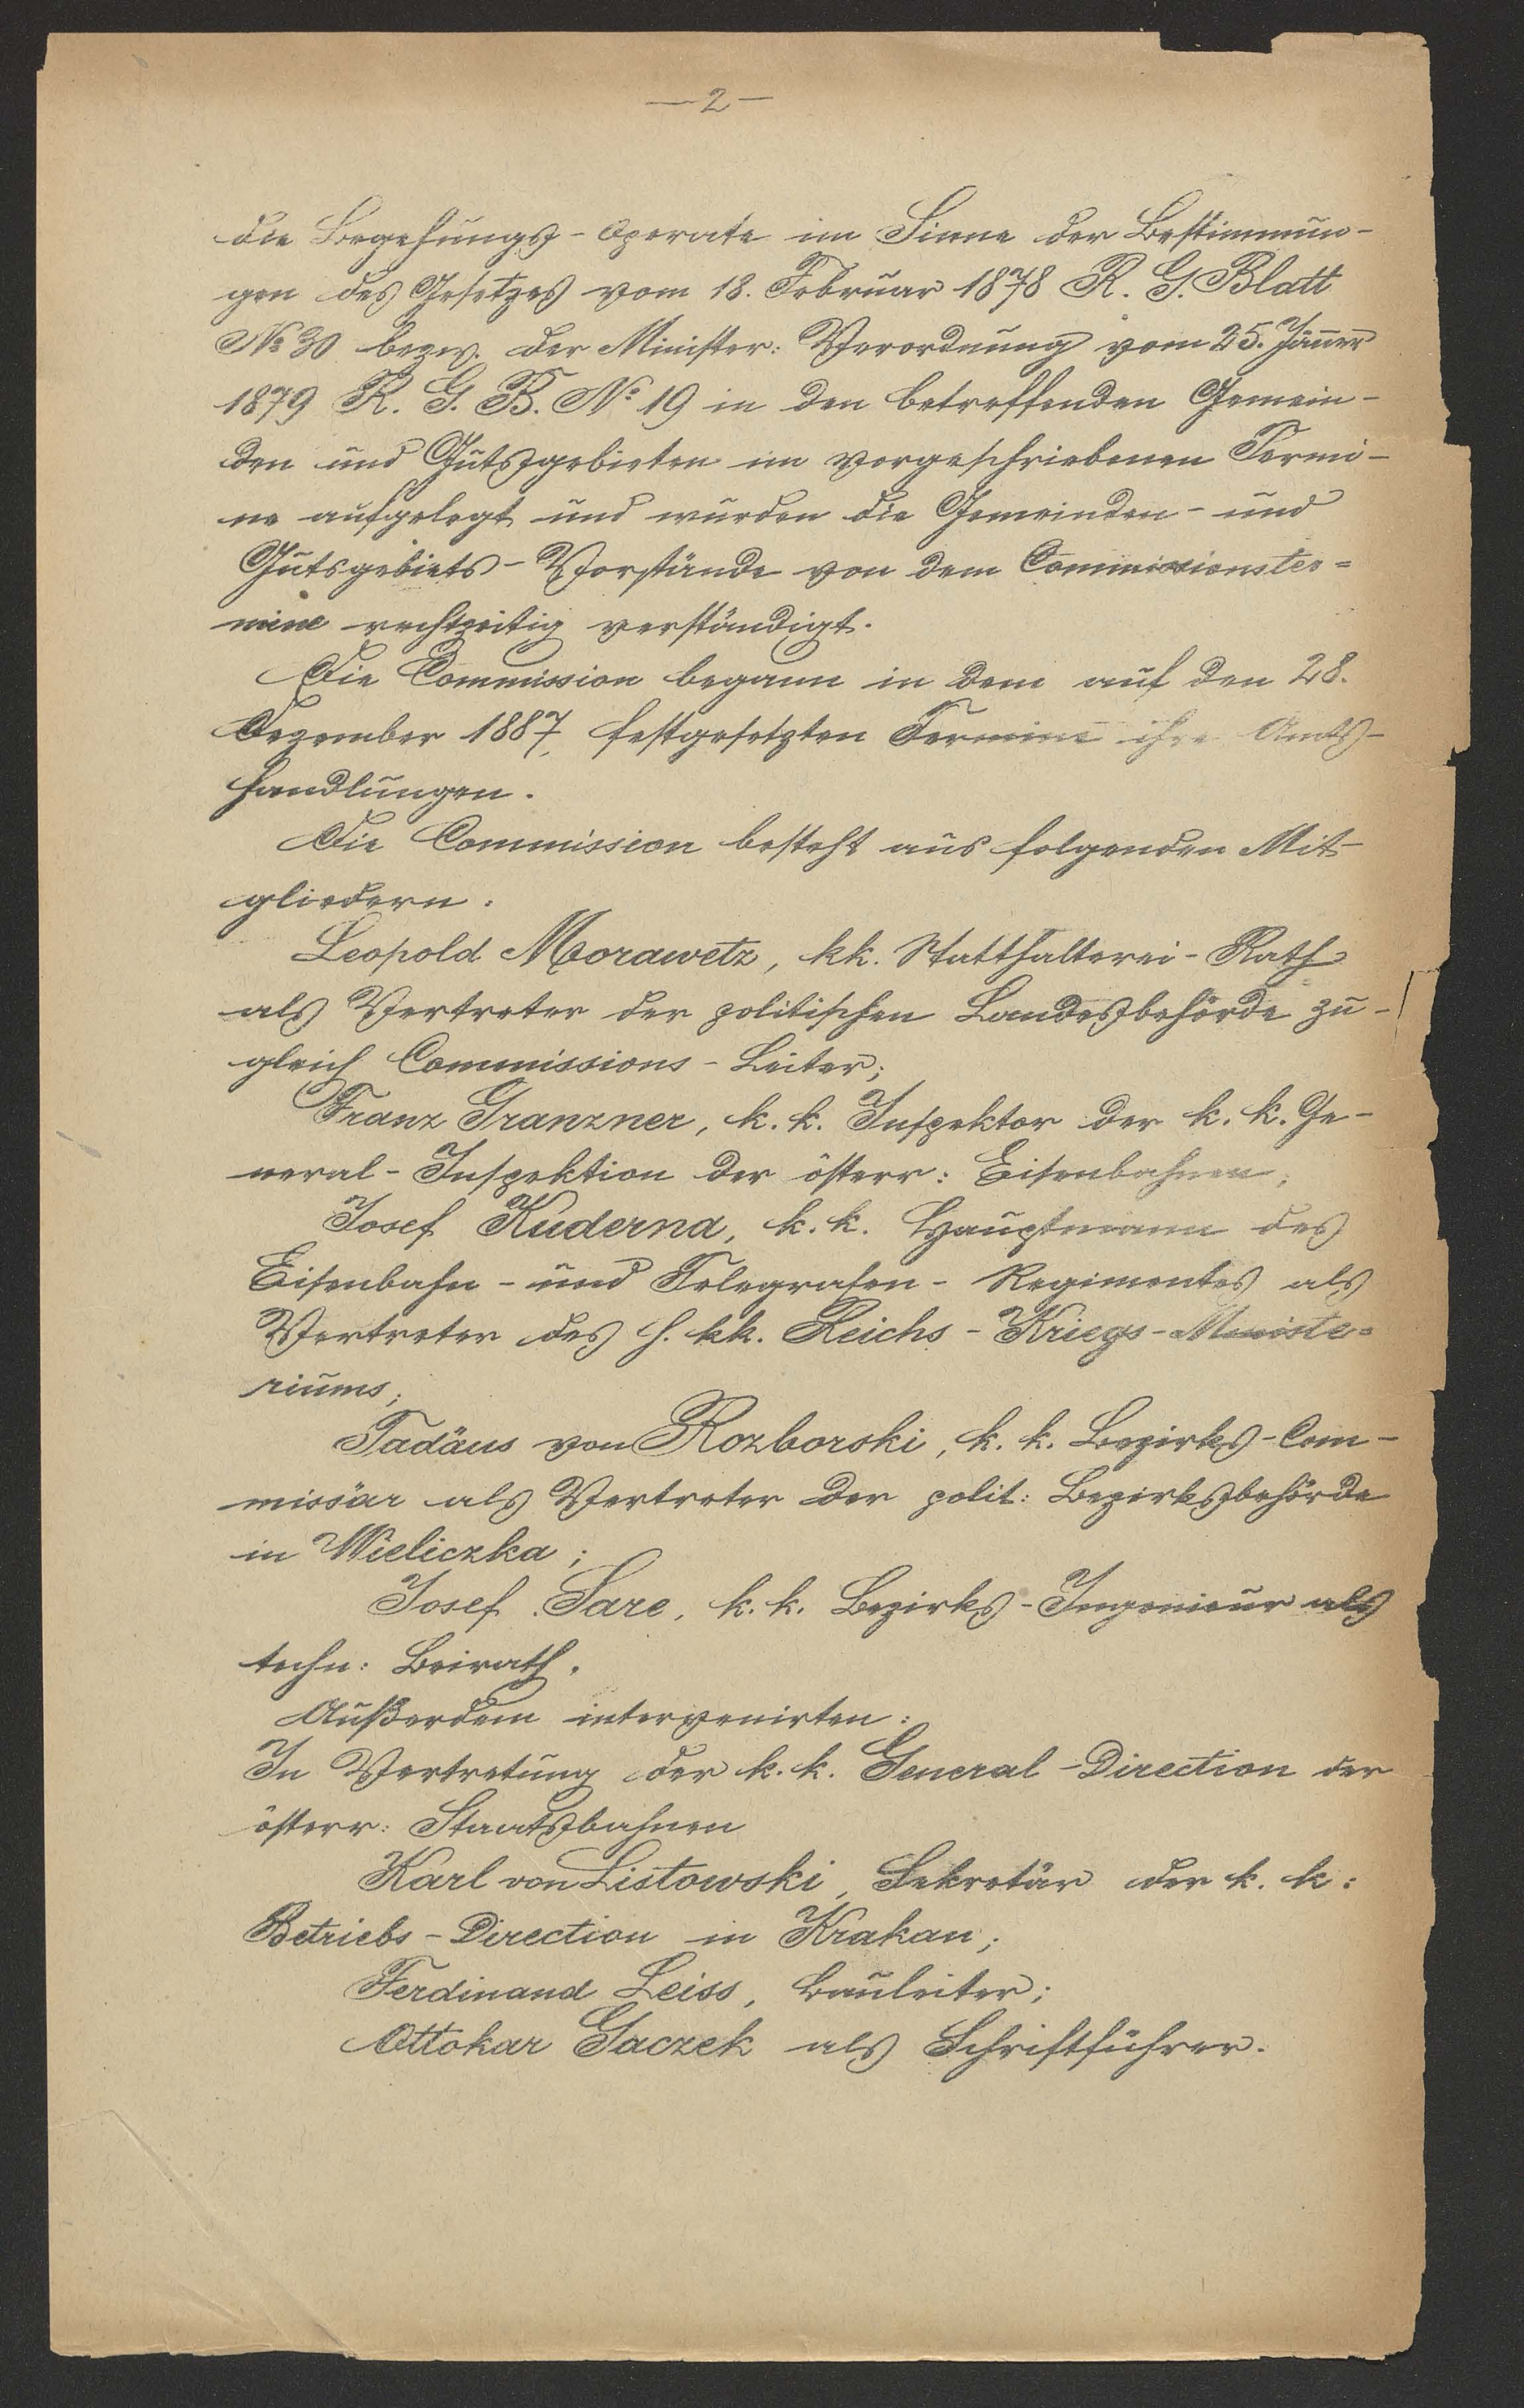 — 2 —
die Begehungs-Operate im Sinne der Bestimmun-
gen des Gesetzes vom 18. Februar 1878 R. G. Blatt
No 30 bezw. der Minister: Verordnung vom 25. Jänner
1879 R. G. B. No 19 in den betreffenden Gemein-
den und Gutsgebieten im vorgeschriebenen Termi-
ne aufgelegt und wurden die Gemeinden- und
Gutsgebiets-Vorstände von dem Commissionster=
mine rechtzeitig verständigt.
Die Commission begann in dem auf den 28.
Dezember 1887, festgesetzten Termine ihre Amts-
handlungen.
Die Commission besteht aus folgenden Mit-
gliedern.
Leopold Morawetz, kk. Statthalterei-Rath
als Vertreter der politischen Landesbehörde zu-
gleich Commissions-Leiter;
Franz Granzner, k. k. Inspektor der k. k. Ge-
neral-Inspektion der österr: Eisenbahnen;
Josef Kuderna, k. k. Hauptmann des
Eisenbahn- und Telegrafen-Regimentes als
Vertreter des h. kk. Reichs-Kriegs-Ministe=
riums;
Tadäus von Rozborski, k. k. Bezirks-Com-
missär als Vertreter der polit: Bezirksbehörde
in Wieliczka;
Josef Sare, k. k. Bezirks-Ingenieur als
techn: Beirath.
Außerdem intervenirten:
In Vertretung der k. k. General-Direction der
österr: Staatsbahnen
Karl von Listowski, Sekretär der k. k:
Betriebs-Direction in Krakau;
Ferdinand Leiss, Bauleiter;
Ottokar Gaczek als Schriftführer.